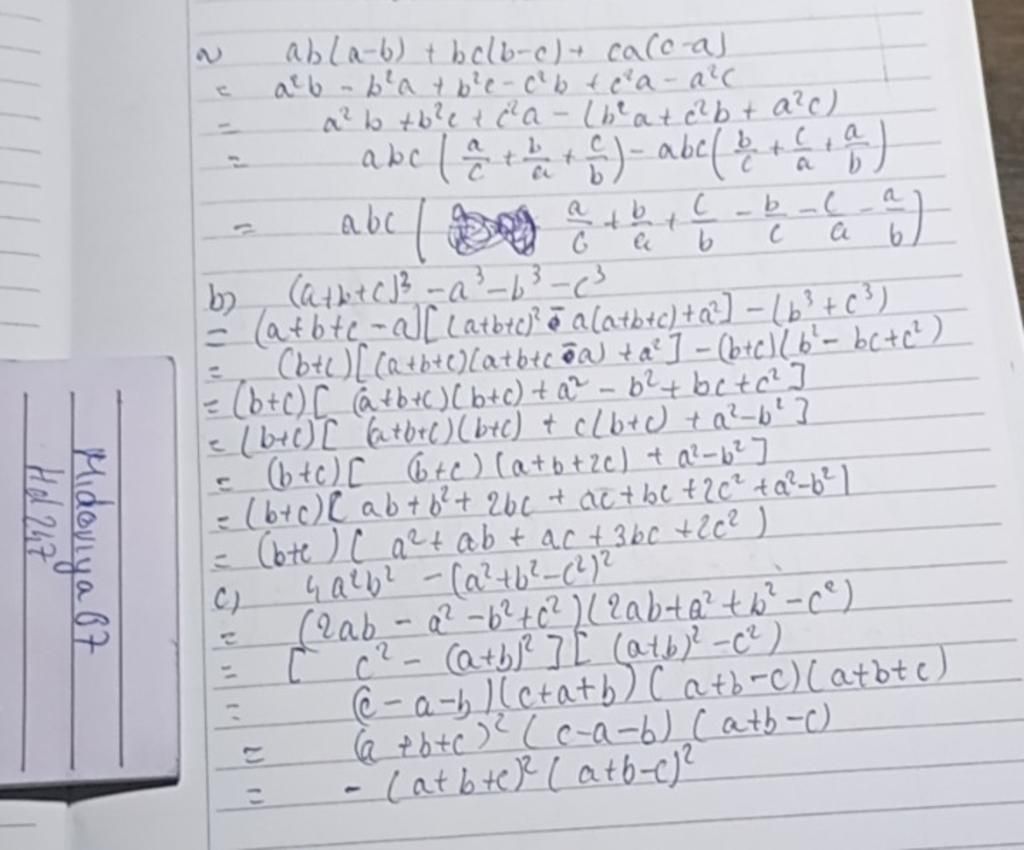 a) ab(a-b) + bc(b-c) + ca(c-a)
= a²b - b²a + b²c - c²b + c²a - a²c
= a²b + b²c + c²a - (b²a + c²b + a²c)
= abc (a/c + b/a + c/b) - abc(b/c + c/a + a/b)
= abc ( a/c + b/a + c/b - b/c - c/a - a/b)
b) (a+b+c)³ - a³ - b³ - c³
= (a+b+c-a)[(a+b+c)² a(a+b+c)+a²] - (b³+c³)
= (b+c)[(a+b+c)(a+b+c a) + a²] - (b+c)(b² - bc + c²)
= (b+c)[ (a+b+c)(b+c) + a² - b² + bc + c²]
= (b+c)[ (a+b+c)(b+c) + c(b+c) + a² - b²]
= (b+c)[ (b+c)(a+b+2c) + a² - b²]
= (b+c)[ab + b² + 2bc + ac + bc + 2c² + a² - b²)
= (b+c)( a² + ab + ac + 3bc + 2c²)
c) 4a²b² - (a²+b²-c²)²
= (2ab - a² - b² + c²)(2ab + a² + b² - c²)
= [ c² - (a+b)²][ (a+b)² - c²)
= (c-a-b)(c+a+b)(a+b-c)(a+b+c)
= (a+b+c)² (c-a-b)(a+b-c)
= - (a+b+c)² (a+b-c)²
Midoriya67
Hd247